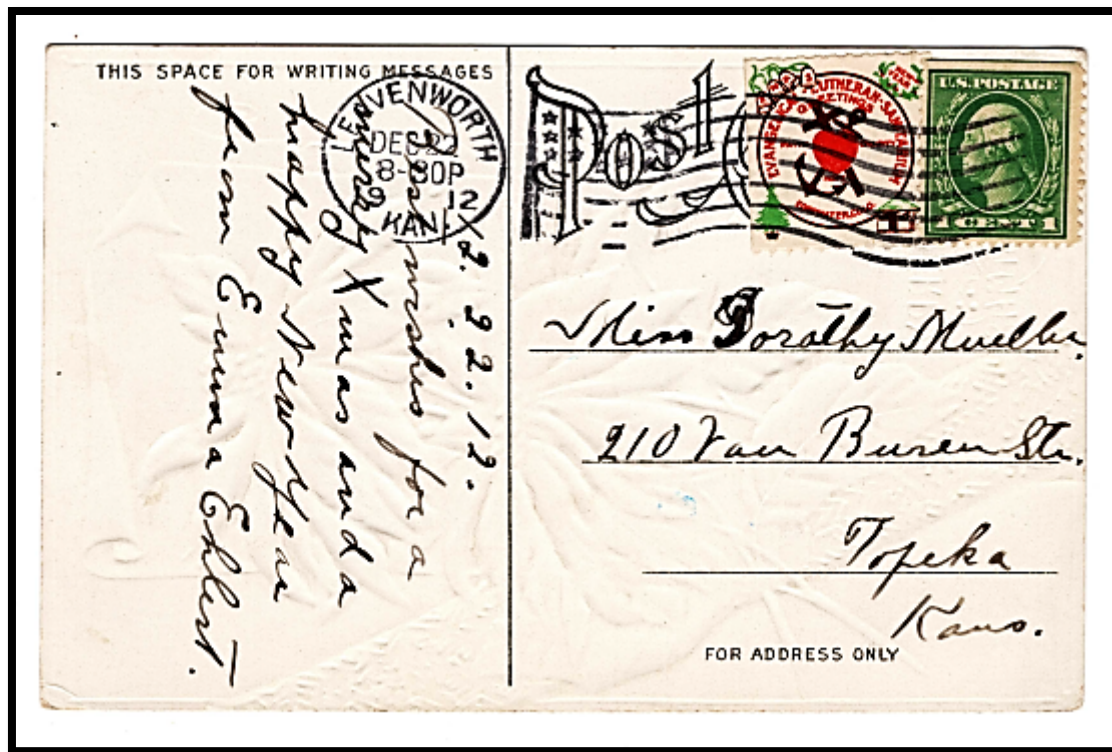 THIS SPACE FOR WRITING MESSAGES
LEAVENWORTH
DEC 22
8-30P
12
KAN.
12.22.12.
Best wishes for a
merry Xmas and a
happy New Year
from Emma Ehlert.
Post
EVANGELICAL LUTHERAN SANITARIUM
GREETINGS
NEW YEAR
U.S. POSTAGE
1 CENT 1
Miss Dorathy Mueller.
210 Van Buren Str.
Topeka
Kans.
FOR ADDRESS ONLY